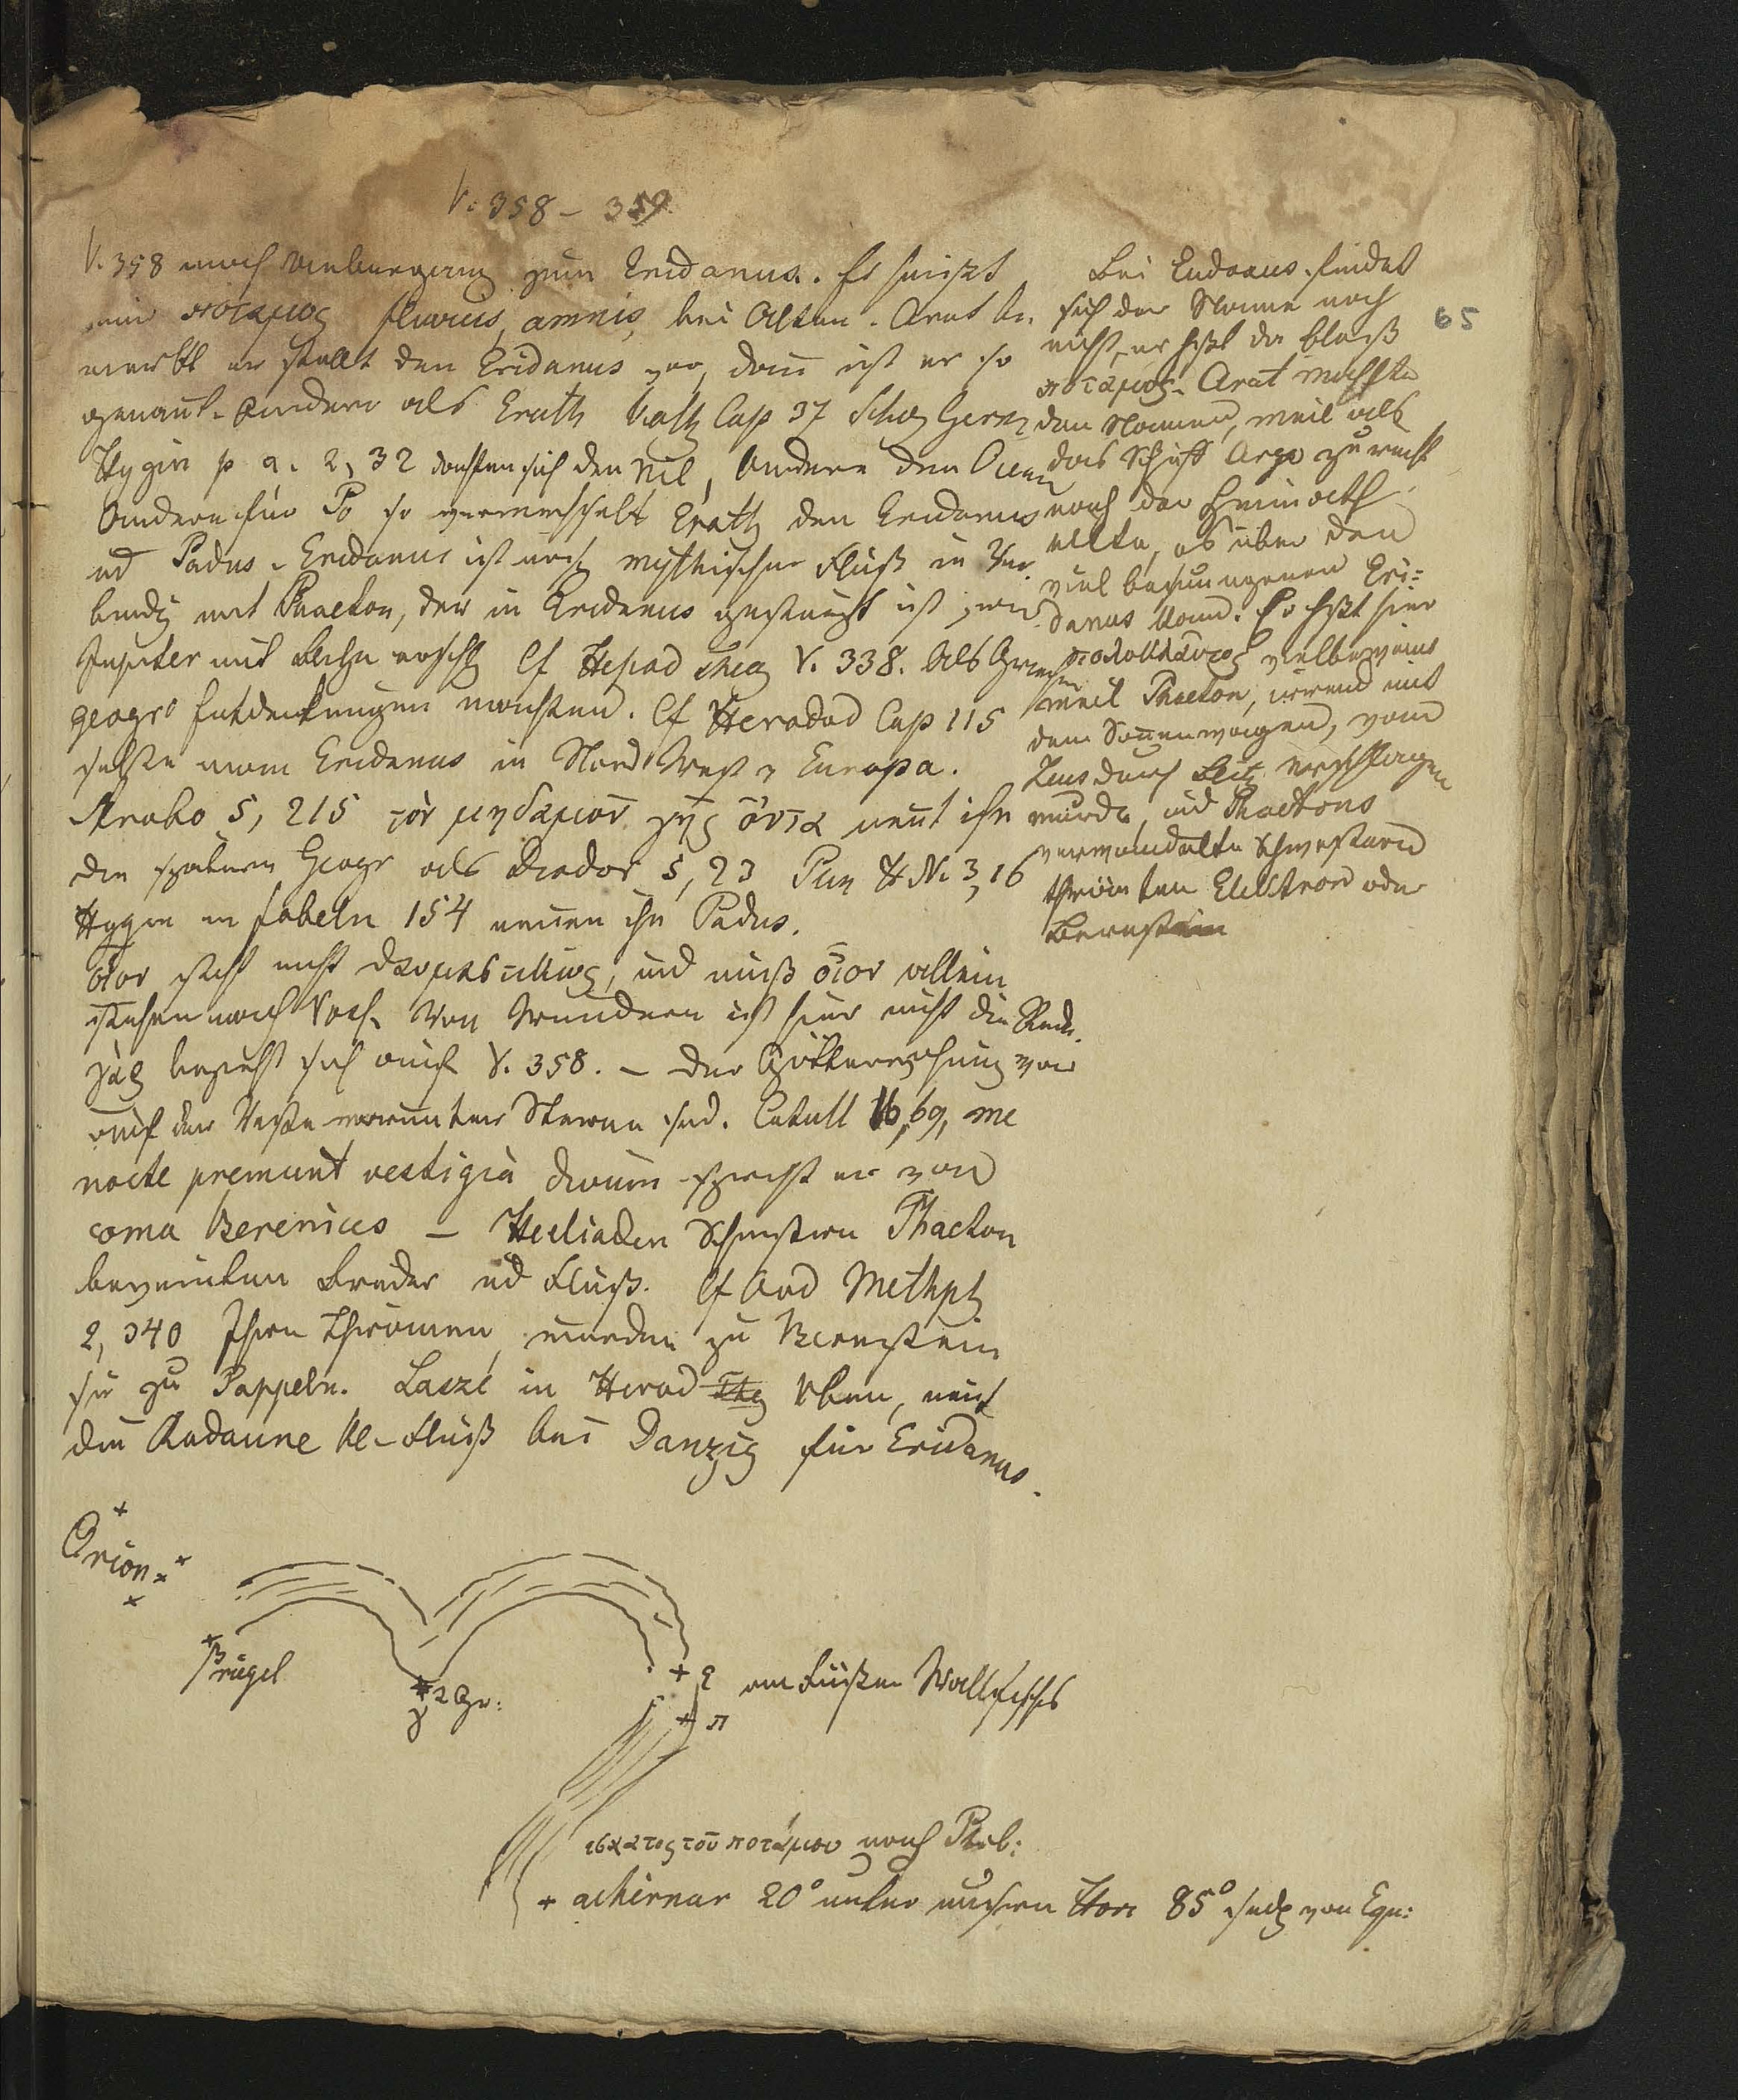 V. 358 – 359
V. 358 macht Uebergang zum Eridanus. Er heißt
ποταμος fluvius, amnis, bei Alten. Arat be-
merkt er stellt den Eridanus vor, dann ist er so
genant. Andere als Erath Cap 37 Schol Germ
Hygin p. a. 2, 32 dachten sich den Nil, Andere den Ocean
Andere für Po so verwechselt Erath den Eridanus
ud Padus. Eridanus ist noch mythischer Fluß in Ver-
bindg mit Phaeton, der in Eridanus gestürzt ist von
Jupiter mit Blitz erschlg Cf Hesiod Theog V. 338. Als Griechen
geogr. Entdeckungen machten. Cf Herodod Cap 115
setzte man Eridanus in Nord West v Europa.
Strabo 5, 215 τὸν μηδαμοῦ γῆς ὄντα nent ihn
die spätern Geogr als Diodor 5, 23 Plin H N. 3, 16
Hygin in fabeln 154 nenen ihn Padus.
οἶον steht nicht und muß οἶον allein
stehen nach Voß. Von Wundern ist hier nicht die Rede.
γάρ bezieht sich auf V. 358. –
auf der Veste Sterne sind. Catull 16, 69, me
nocte premunt vestigia divum spricht er von
coma Berenices – Heeliaden Schwestern Phaeton
beweinten Bruder ud Fluß. Cf Ovd Methph
2, 340 Ihre Thränen wurden zu Bernstein
sie zu Pappeln. Laszé in Herod
die Radaune Kl-Fluß bei Danzig für Eridanus.
Bei Eudoxus findet
sich der Name noch
nicht, er heßt da bloß
ποταμος. Arat machte
den Namen, weil als
das Schiff Argo zurück
nach der Heimath
eilte, es über den
viel besungenen Eri-
danus kam. Er heßt hier
πολυκλαυτος vielbeweint
weil Phaeton, irrend mit
dem Sonenwagen, vom
Zeus durch Blitz erschlagen
wurde, und Phaetons
verwandelte Schwestern
thränten Elektron oder
Bernstein
65
Orion
β rigel
γ 2 Gr:
η am Füßen Wallfisches
π
εσχατος τοῦ ποτάμου nach Ptol:
achernar 20° unter unsern Hori 85° südl von Equ: